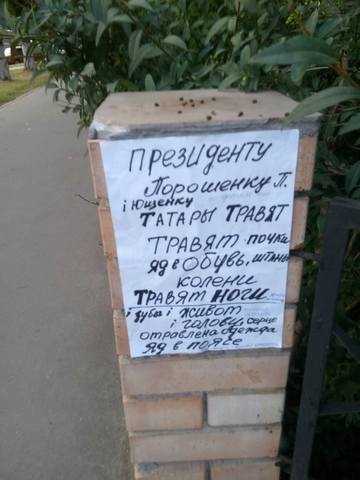 ПРЕЗИДЕНТУ
Порошенку П.
і Ющенку
ТАТАРЫ ТРАВЯТ
ТРАВЯТ почки
яд в ОБУВЬ, штаны
колени
ТРАВЯТ НОГИ
і зуба і живот
і голову, сердце
отравлена одежда
яд в поясе